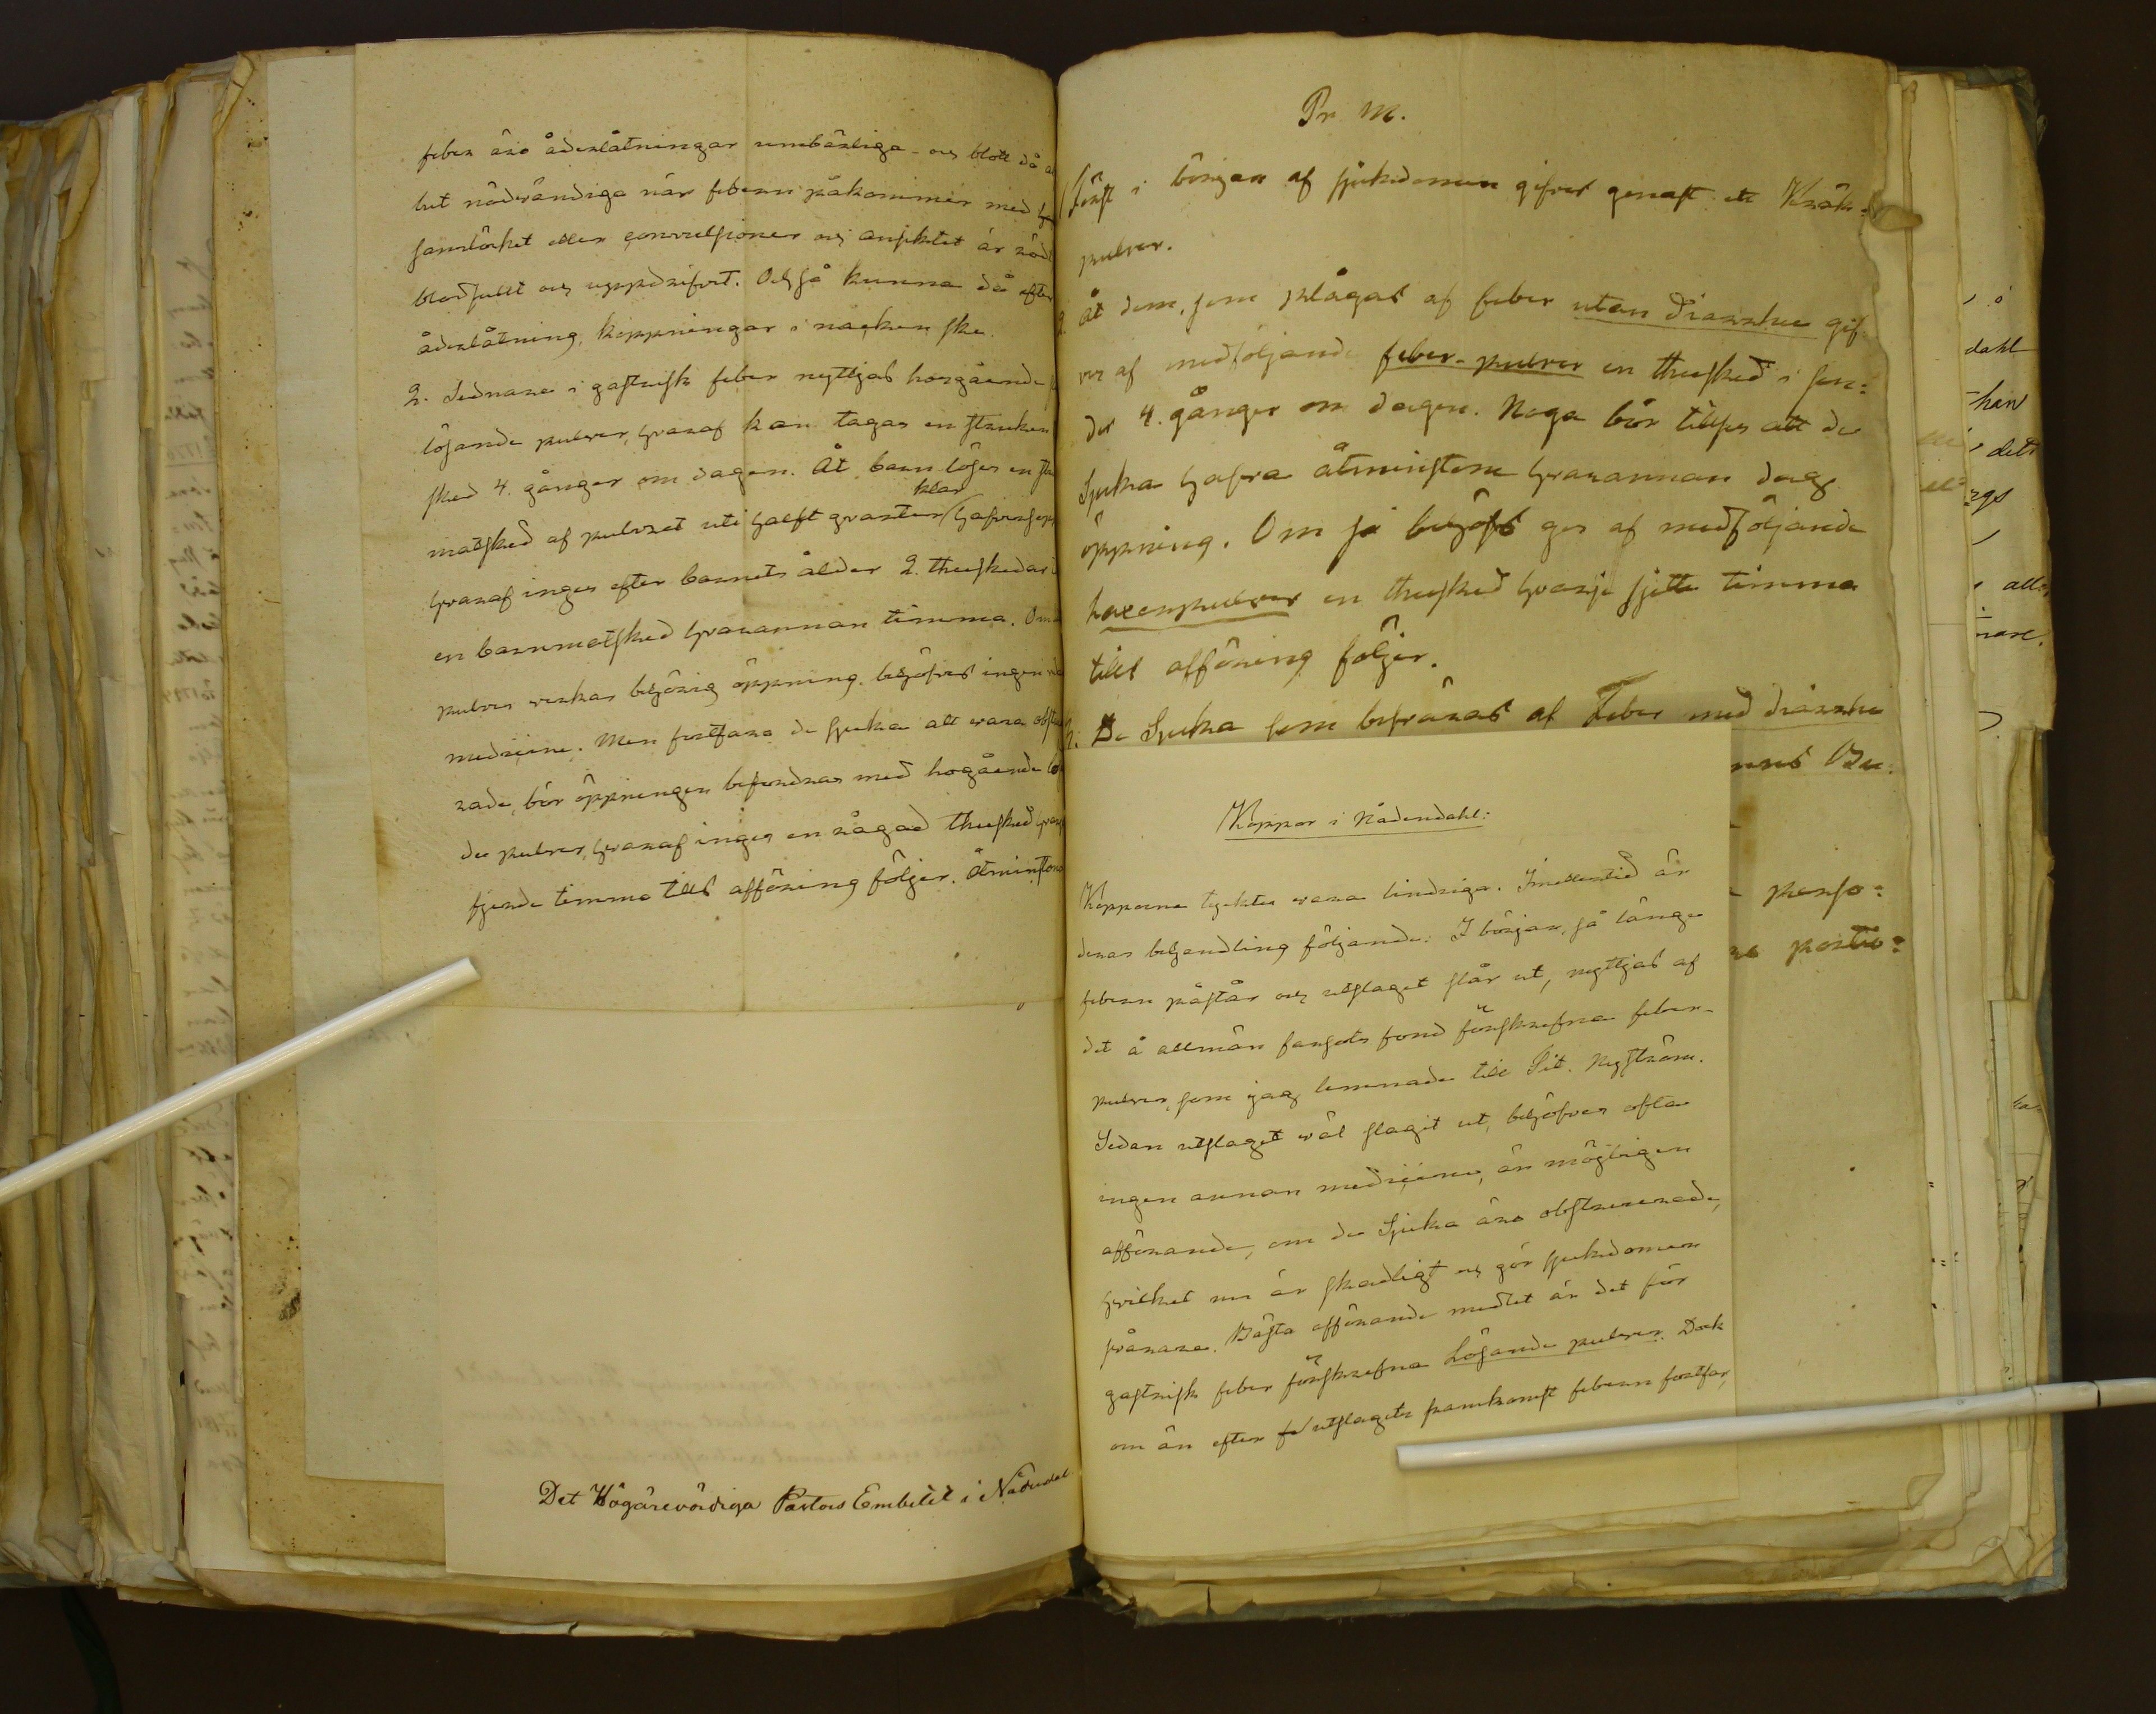 feber äro åderlåtningar umbärliga - och blott då
lut nödvändiga när febern påkommer med
samlöshet eller convulsioner och ansiktet är röd
blodfullt och uppdrifvet. Också kunna då efter
åderlåtning, koppningar i nacken ske.
2. Sednare i gastrisk feber nyttjas hosgående
lösande pulver, hvaraf kan tagas en struken
sked 4. gånger om dagen. Åt barn löses en
klar
matsked af pulvret uti halft qvarter hafresopp
hvaraf inges efter barnets ålder 2. theskedar
en barnmatsked hvarannan timma. Om
pulver verkar behörig öppning, behöfves ingen
medicine. Men fortfara de sjuka att vara
rade, bör öppningen befordras med hogående
de pulver, hvaraf inges en rågad thesked
fjerde timma tills afföring följer. Åtminstone
Det Högärevördiga Pastors Embetet i Nådendal.
Pr. M.
Först i början af sjukdomen gifves genast ett Kräk-
pulver.
2. Åt dem, som plågas af feber utan Diarrhee gif
ves af medföljande feber-pulver en thesked i sen:
der 4. gånger om dagen. Noga bör tillses att de
Sjuka hafva åtminstone hvarannan dag
öppning. Om så behöfs ges af medföljande
Laxerpulver en thesked hvarje sjette timma
tills afföring följer.
3. De Sjuka som besväras af Feber med diarrhe
perso:
portio:
Koppor i Nådendahl:
Kopporna tycktes vara lindriga. Imellertid är
deras behandling följande: I början, så länge
febern påstår och utslaget slår ut, nyttjas af
det å allmän farsots fond förskrefna feber-
pulver, som jag lemnade till Sit. Nyström.
Sedan utslaget väl slagit ut, behöfves ofta
ingen annan medicine, än möjligen
afförande, om de Sjuka äro obstruerade,
hvilket nu är skadligt och gör sjukdomen
svårare. Bästa afförande medlet är det för
gastrisk feber förskrefna Lösande pulver. Dock
om än efter utslagets framkomst febern fortfar,
dahl
han
det